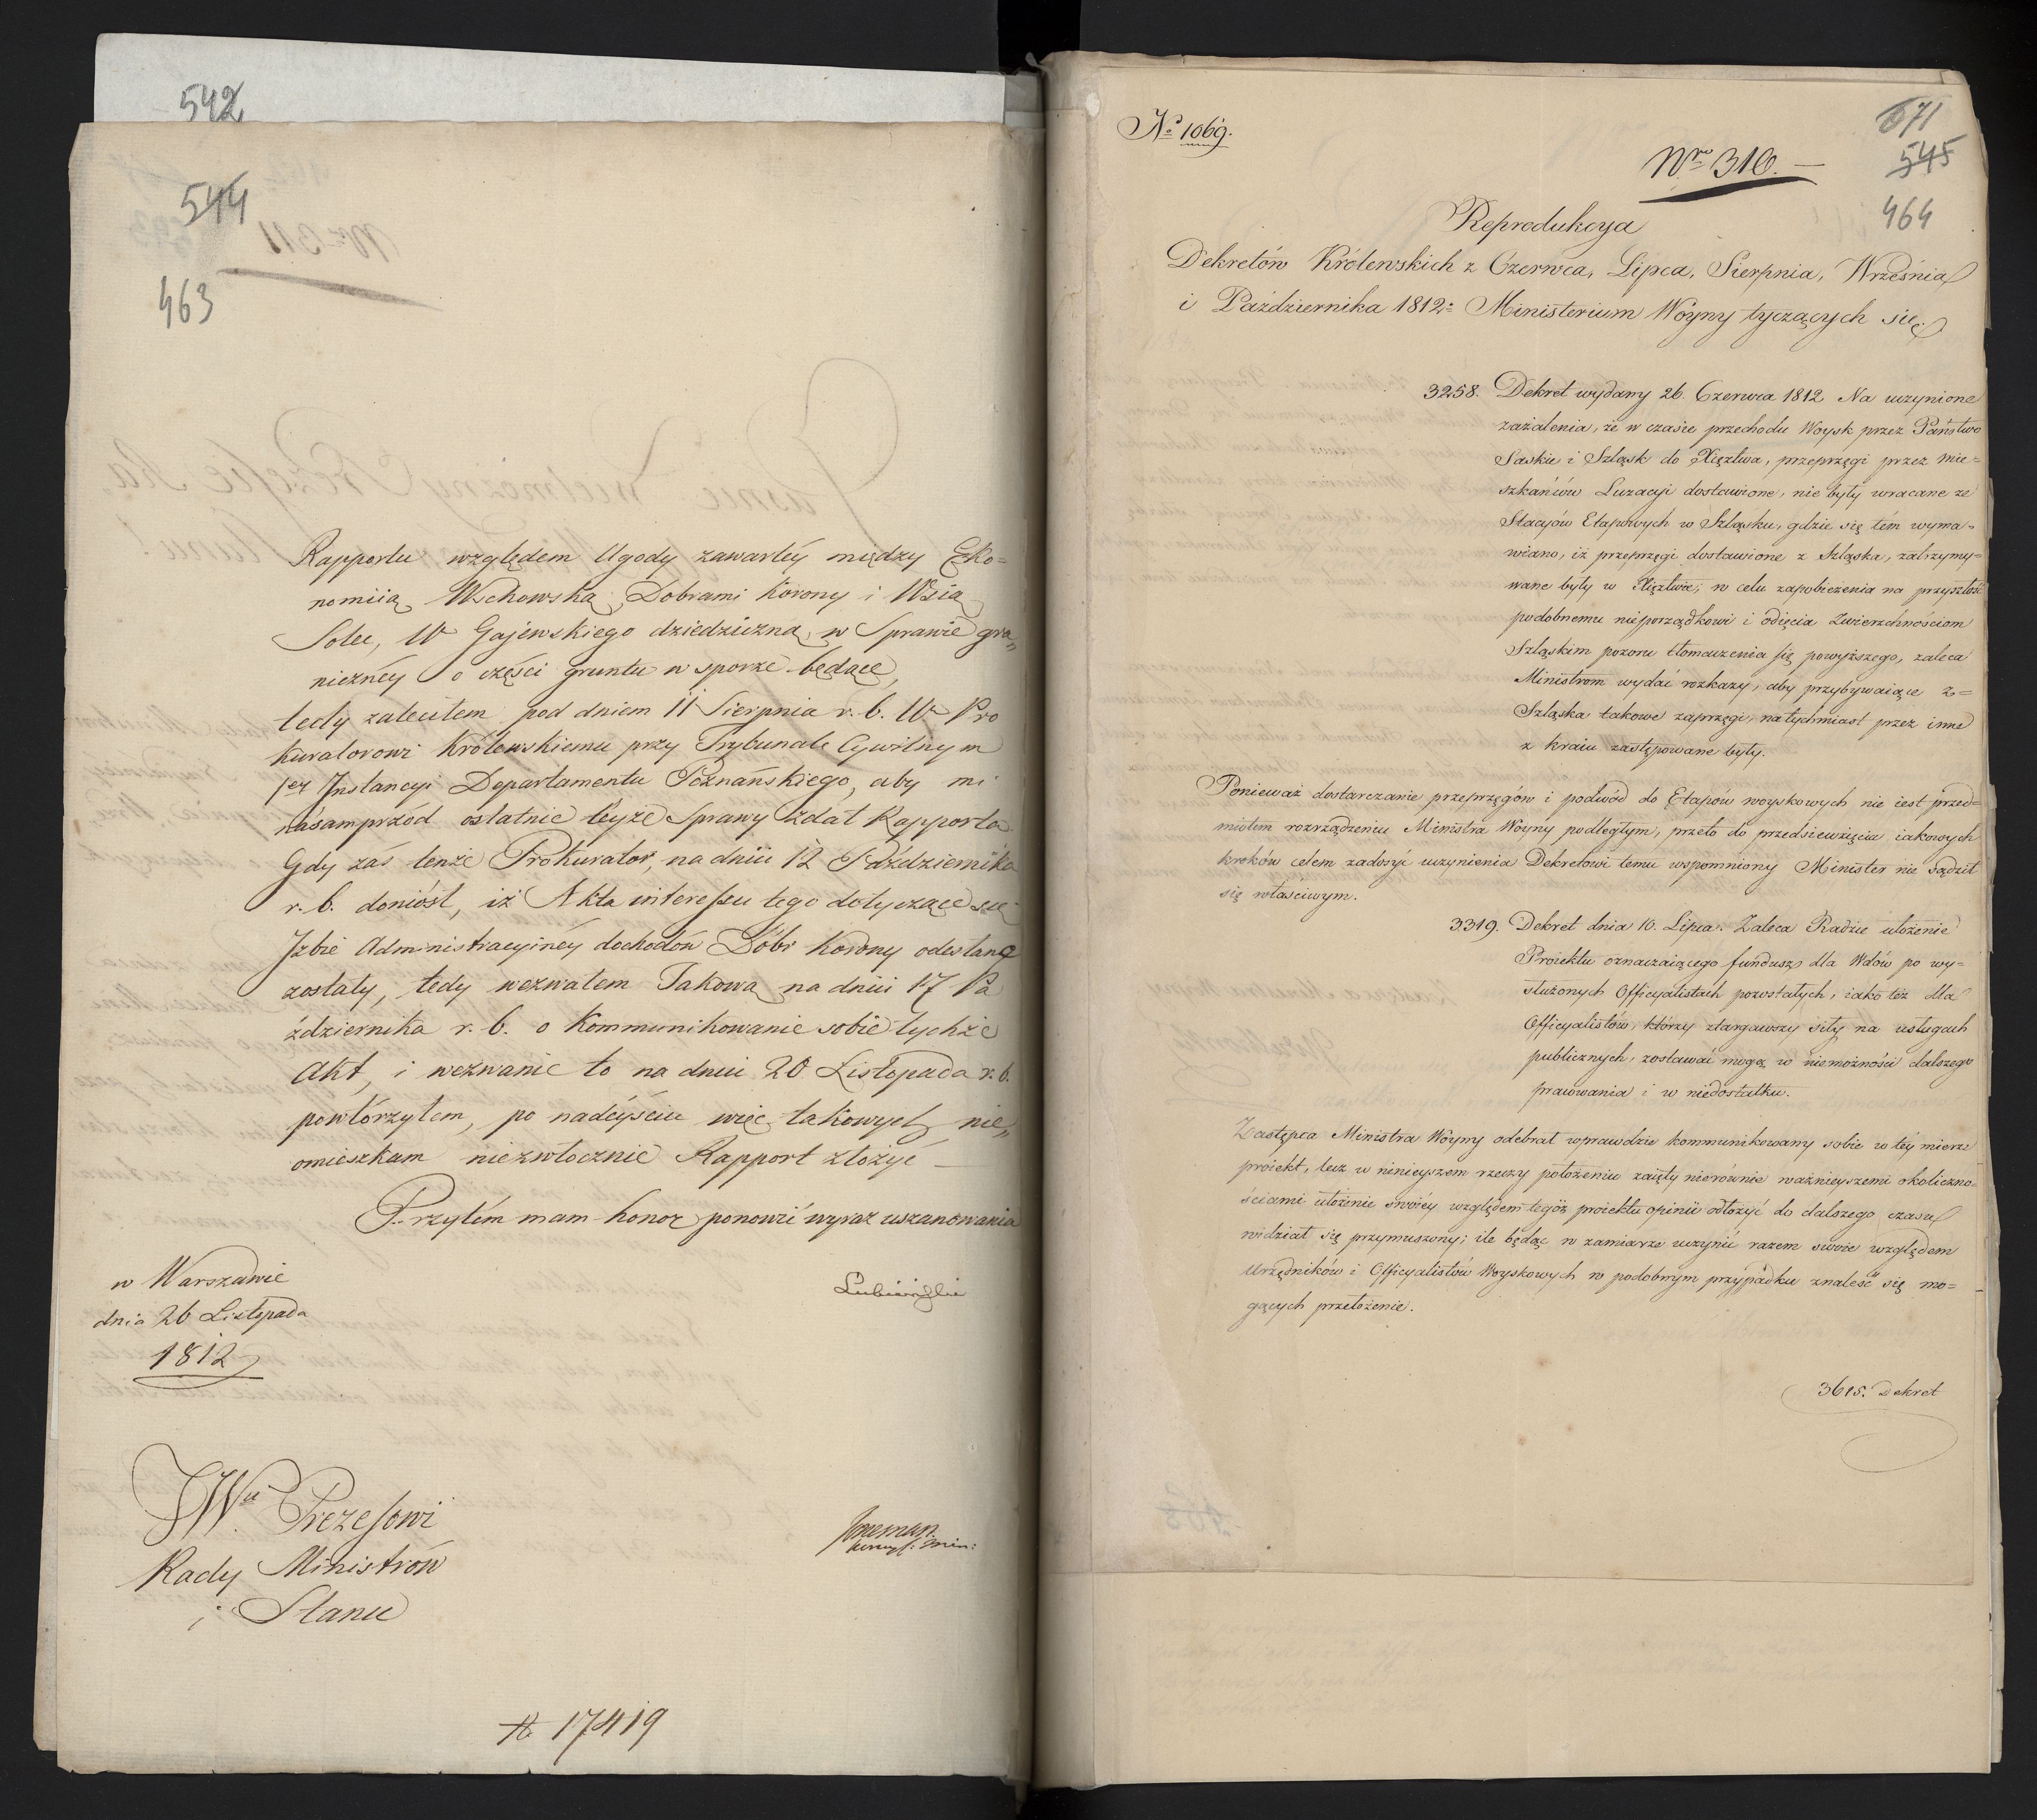 542
544
463
Rapportu względem Ugody zawartéy między Eko=
nomiią Wschowską, Dobrami Korony i Wsią
Solec, W Gajewskiego dziedziczną, w Sprawie gra„
nicznéy o części gruntu w sporze będące,
tedy zaleciłem pod dniem 11 Sierpnia r. b. W Pro
kuratorowi Królewskiemu przy Trybunale Cywilnym
1er Instancyi Departamentu Poznańskiego, aby mi
nasamprzód ostatnie teyże Sprawy zdał Rapporta
Gdy zaś tenże Prokurator, na dniu 12 Października
r. b. doniósł, iż Akta interessu tego dotyczące się
Izbie Administracyinéy dochodów Dóbr Korony odesłane
zostały, tedy wezwałem Takową na dniu 17 Pa
ździernika r. b. o Kommunikowanie sobie tychże
Akt, i wezwanie to na dniu 20 Listopada r. b.
powtórzyłem, po nadéyściu więc takowych nie„
omieszkam niezwłocznie Rapport złożyć —
Przytém mam honor ponowić wyraz uszanowania
w Warszawie
dnia 26 Listopada
1812
Lubieński
JWu Prezesowi
Rady Ministrów
i Stanu
17419
No 1069.
Nro 316. —
671
545
464
Reprodukcya
Dekretów Królewskich z Czerwca, Lipca, Sierpnia, Września
i Października 1812: Ministerium Woyny tyczących się.
3258. Dekret wydany 26. Czerwca 1812 Na uczynione
zażalenia, że w czasie przechodu Woysk przez Państwo
Saskie i Szląsk do Xięztwa, przeprzęgi przez mie=
szkańców Luzacyi dostawione, nie były wracane ze
Stacyów Etapowych w Szląsku, gdzie się tém wyma=
wiano, iż przeprzęgi dostawione z Szląska, zatrzymy=
wane były w Xięztwie; w celu zapobieżenia na przyszłość
podobnemu nieporządkowi i odięcia Zwierzchnościom
Szląskim pozoru tłomaczenia się powyższego, zaleca
Ministrom wydać rozkazy, aby przybywaiące z=
Szląska takowe zaprzęgi, natychmiast przez inne
z kraiu zastępowane były.
Ponieważ dostarczanie przeprzęgów i podwód do Etapów woyskowych nie iest przed=
miotem rozrządzeniu Ministra Woyny podległym, przeto do przedsiewzięcia iakowych
kroków celem zadosyć uczynienia Dekretowi temu wspomniony Minister nie sądził
się właściwym.
3319. Dekret dnia 10. Lipca. Zaleca Radzie ułożenie
Proiektu oznaczaiącego fundusz dla Wdów po wy=
służonych Officyalistach pozostałych, iako też dla
Officyalistów, którzy stargawszy siły na usługach
publicznych, zostawać mogą w niemożności dalszego
pracowania i w niedostatku.
Zastępca Ministra Woyny odebrał wprawdzie kommunikowany sobie w téy mierze
proiekt, lecz w ninieyszem rzeczy położeniu zaięty nierównie ważnieyszemi okoliczno=
ściami ułożenie swoiéy względem tegoż proiektu opinii odłożyć do dalszego czasu
widział się przymuszony; ile będąc w zamiarze uczynić razem swoie względem
Urzędników i Officyalistów Woyskowych w podobnym przypadku znaleść się mo=
gących przełożenie.
3615. Dekret